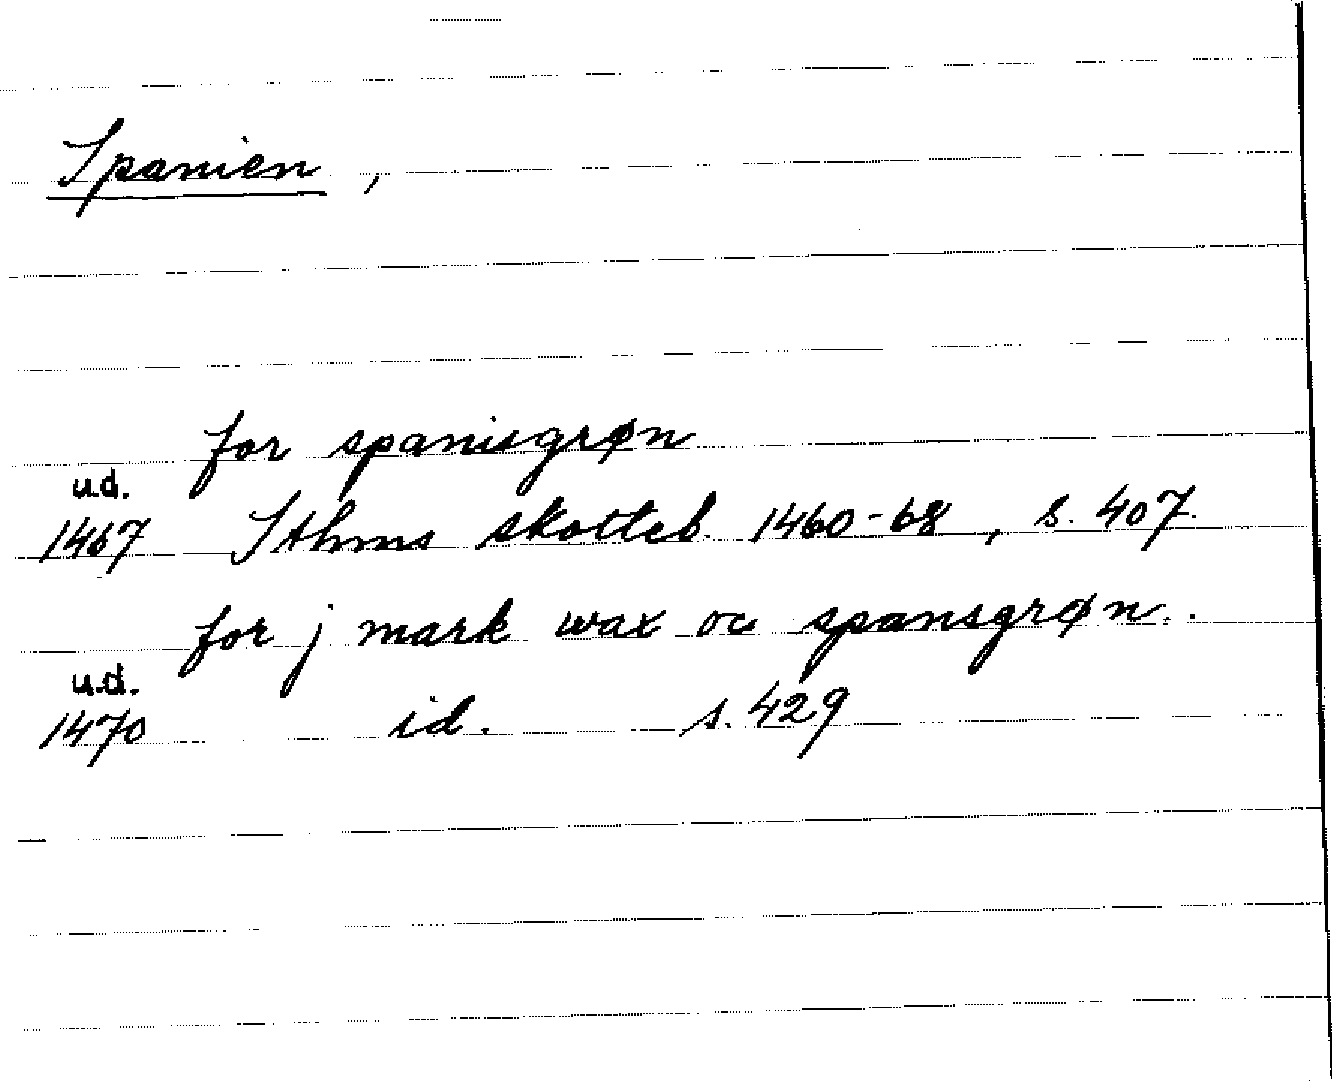 Spanien,
for spanisgrøn
u.d.
1467 Sthms skotteb. 1460-68, s. 407.
for j mark wax oc spansgrøn.
u.d.
1470 id. s. 429